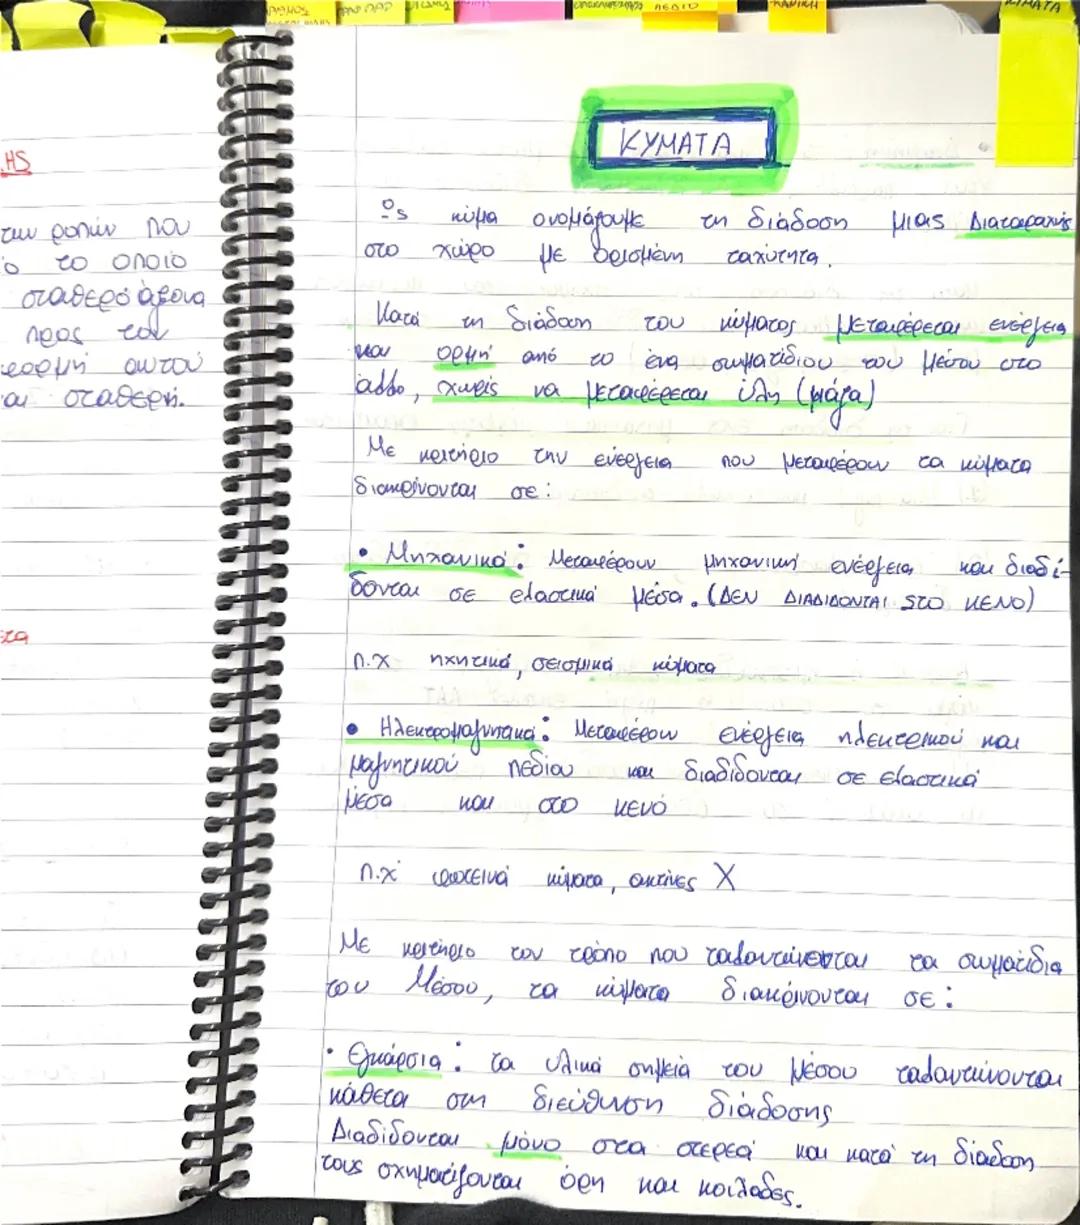 ΚΥΜΑΤΑ
ΚΥΜΑΤΑ
ΗS
των ροπών που
ο το οποίο
σταθερό άξονα
προς τον
στροφορμή αυτού
αι σταθερή.
τα
Ως κύμα ονομάζουμε τη διάδοση μιας Διαταραχής
στο χώρο με ορισμένη ταχύτητα.
Κατά τη διάδοση του κύματος μεταφέρεται ενέργεια
και ορμή από το ένα σωματίδιου του μέσου στο
άλλο, χωρίς να μεταφέρεται ύλη (μάζα)
Με κριτήριο την ενέργεια που μεταφέρουν τα κύματα
διακρίνονται σε:
• Μηχανικά: Μεταφέρουν μηχανική ενέργεια και διαδί-
δονται σε ελαστικά μέσα. (ΔΕΝ ΔΙΑΔΙΔΟΝΤΑΙ ΣΤΟ ΚΕΝΟ)
π.χ ηχητικά, σεισμικά κύματα
• Ηλεκτρομαγνητικά: Μεταφέρουν ενέργεια ηλεκτρικού και
μαγνητικού πεδίου και διαδίδονται σε ελαστικά
μέσα και στο κενό
π.χ φωτεινά κύματα, ακτίνες Χ
Με κριτήριο τον τρόπο που ταλαντώνονται τα σωματίδια
του Μέσου, τα κύματα διακρίνονται σε:
• Εγκάρσια: τα υλικά σημεία του Μέσου ταλαντώνονται
κάθετα στη διεύθυνση διάδοσης
Διαδίδονται μόνο στα στερεά και κατά τη διάδοση
τους σχηματίζονται όρη και κοιλάδες.